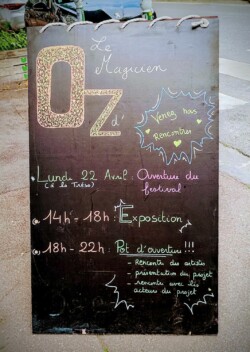 Le
Magicien
d'
OZ
Venez nous
Rencontrer
Lundi 22 Avril : Ouverture du
festival
14h - 18h : Exposition
18h - 22h : Pot d'ouverture !!!
- Rencontre des artistes
- présentation du projet
- rencontre avec les
acteurs du projet